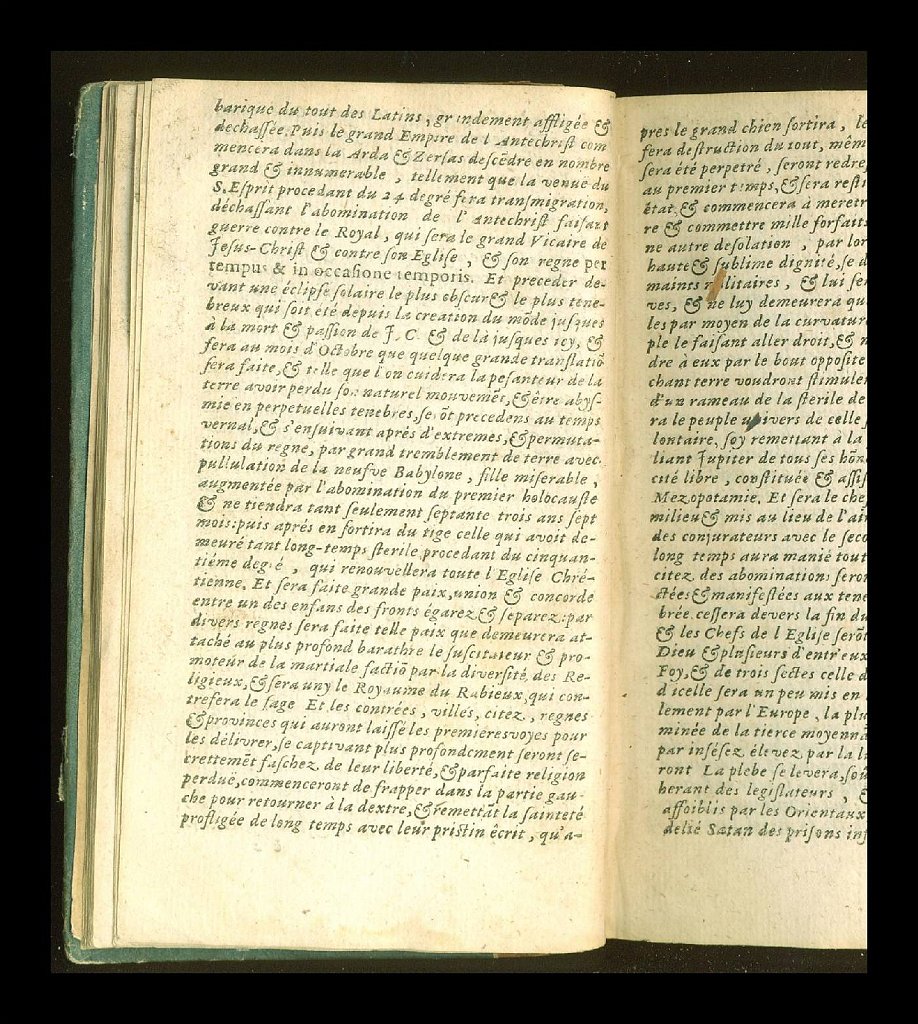 barique du tout des Latins, grandement affligée &
dechaſſée. Puis le grand Empire de l'Antechriſt com
mencera dans la Arda & Zerſas deſcēdre en nombre
grand & innumerable, tellement que la venuë du
S. Eſprit procedant du 24 degré fera tranſmigration,
déchaſſant l'abomination de l'Antechriſt faiſant
guerre contre le Royal, qui ſera le grand Vicaire de
Jeſus-Chriſt & contre ſon Egliſe, & ſon regne per
tempus & in occaſione temporis. Et preceder de-
vant une éclipſe ſolaire le plus obſcur & le plus tene-
breux qui ſoit été depuis la creation du mōde juſques
à la mort & paſſion de J. C. & de là juſques icy, &
ſera au mois d'Octobre que quelque grande tranſlatiō
ſera faite, & telle que l'on cuidera la peſanteur de la
terre avoir perdu ſon naturel mouvemēt, & être abyſ-
mie en perpetuelles tenebres, ſerōt precedens au temps
vernal, & s'enſuivant aprés d'extremes, & permuta-
tions du regne, par grand tremblement de terre avec
pullulation de la neufve Babylone, fille miſerable,
augmentée par l'abomination du premier holocauſte
& ne tiendra tant ſeulement ſeptante trois ans ſept
mois: puis aprés en ſortira du tige celle qui avoit de-
meuré tant long-temps ſterile procedant du cinquan-
tiéme degré, qui renouvellera toute l'Egliſe Chré-
tienne. Et ſera faite grande paix, union & concorde
entre un des enfans des fronts égarez & ſeparez: par
divers regnes ſera faite telle paix que demeurera at-
taché au plus profond barathre le ſuſcitateur & pro-
moteur de la martiale factiō par la diverſité des Re-
ligieux, & ſera uny le Royaume du Rabieux, qui con-
trefera le ſage Et les contrées, villes, citez, regnes
& provinces qui auront laiſſé les premieres voyes pour
les délivrer, ſe captivant plus profondement ſeront ſe-
crettemēt faſchez de leur liberté, & parfaite religion
perduë, commenceront de frapper dans la partie gau-
che pour retourner à la dextre, & remettāt la ſainteté
profligée de long temps avec leur priſtin écrit, qu'a-
prés le grand chien ſortira, le
fera deſtruction du tout, mêm
ſera été perpetré, ſeront redre
au premier temps, & ſera reſti
état & commencera à meretr
re & commettre mille forfaits
ne autre deſolation, par lor
haute & ſublime dignité, ſe d
maints militaires, & lui ſer
ves, & ne luy demeurera qu
les par moyen de la curvature
ple le faiſant aller droit, & n
dre à eux par le bout oppoſite
chant terre voudront ſtimuler
d'un rameau de la ſterile de
ra le peuple univers de celle
lontaire, ſoy remettant à la
liant Jupiter de tous ſes hōn
cité libre, conſtituée & aſſiſ
Mezopotamie. Et ſera le che
milieu & mis au lieu de l'air
des conjurateurs avec le ſeco
long temps aura manié tout
citez des abominations ſeron
ctées & manifeſtées aux tene
brée ceſſera devers la fin du
& les Chefs de l'Egliſe ſerōt
Dieu & pluſieurs d'entr'eux
Foy, & de trois ſectes celle d
d'icelle ſera un peu mis en
lement par l'Europe, la plu
minée de la tierce moyenna
par inſéſez élevez par la l
ront La plebe ſe levera, ſoū
herant des legiſlateurs, &
affoiblis par les Orientaux
delié Satan des priſons inf